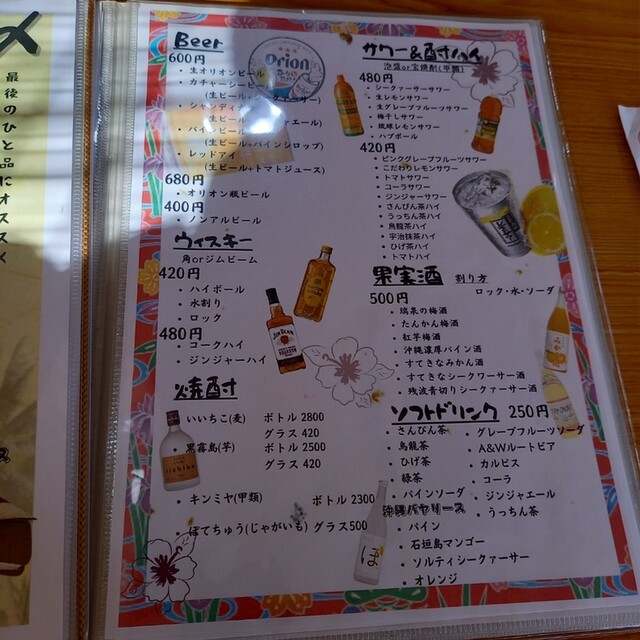 最後のひと品にオススメ
Beer
600円
生オリオンビール
Orion
カチャーシービ
(生ビール
シャンディ
生ビール
パインビール
(生ビール+パインシロップ)
レッドアイ
(生ビール+トマトジュース)
680円
オリオン瓶ビール
400円
ノンアルビール
ウィスキー
角orジムビーム
420円
ハイボール
水割り
ロック
480円
コークハイ
ジンジャーハイ
JIM BEAM
焼酎
いいちこ(麦) ボトル 2800
グラス 420
黒霧島(芋) ボトル 2500
グラス 420
iichiko
キンミヤ(甲類) ボトル 2300
ぽてちゅう(じゃがいも) グラス500
サワー&酎ハイ
泡盛or宝焼酎(甲類)
480円
シークァーサーサワー
生レモンサワー
生グレープフルーツサワー
梅干しサワー
琉球レモンサワー
ハブボール
420円
ピンクグレープフルーツサワー
こだわりレモンサワー
トマトサワー
コーラサワー
ジンジャーサワー
さんぴん茶ハイ
うっちん茶ハイ
烏龍茶ハイ
宇治抹茶ハイ
ひげ茶ハイ
トマトハイ
果実酒 割り方
ロック・水・ソーダ
500円
瑞泉の梅酒
たんかん梅酒
紅芋梅酒
沖縄濃厚パイン酒
すてきなみかん酒
すてきなシークワーサー酒
残波青切りシークァーサー酒
ソフトドリンク 250円
さんぴん茶
烏龍茶
ひげ茶
緑茶
パインソーダ
沖縄バヤリース
パイン
石垣島マンゴー
ソルティシークァーサー
オレンジ
グレープフルーツソーダ
A&Wルートビア
カルピス
コーラ
ジンジャエール
うっちん茶
ぽ